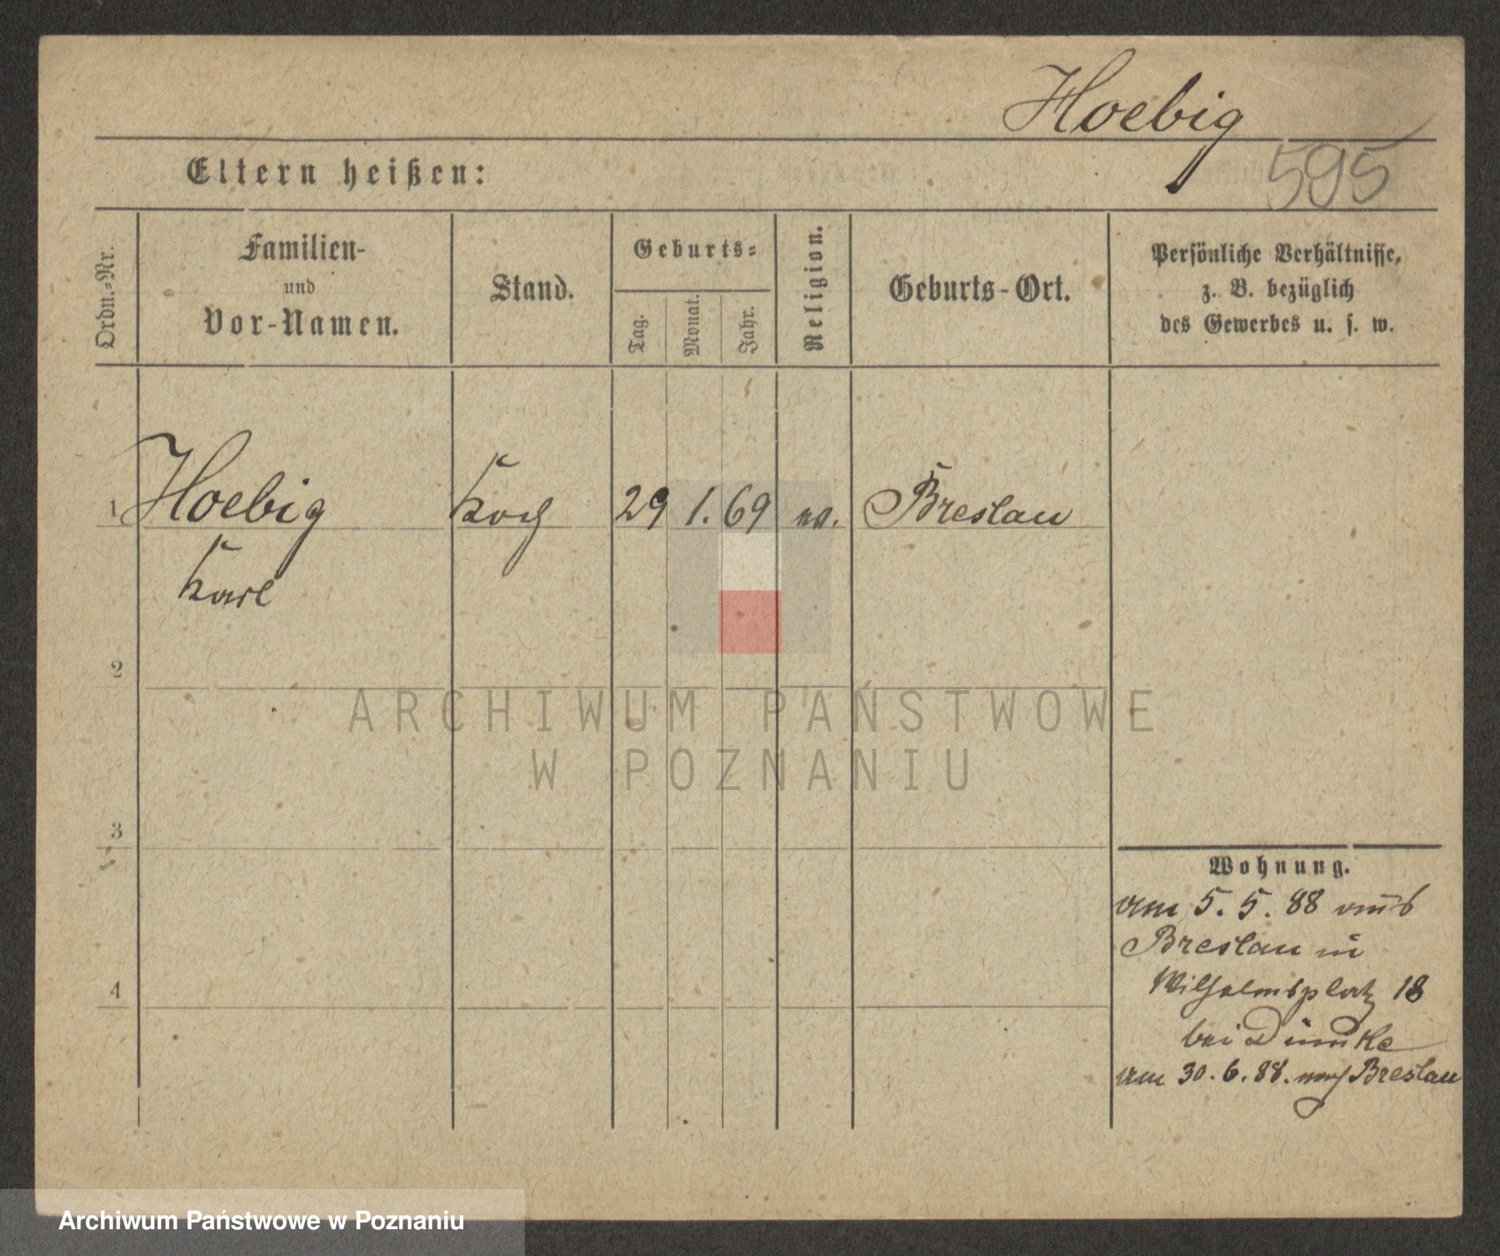 Hoebig
595
Eltern heißen:
Ordn.-Nr.
Familien-
und
Vor-Namen.
Stand.
Geburts-
Tag.
Monat.
Jahr.
Religion.
Geburts-Ort.
Persönliche Verhältnisse,
z. B. bezüglich
des Gewerbes u. s. w.
1 Hoebig Koch 29 1. 69 Breslau
Karl
2
3
4
Wohnung.
am 5. 5. 88 aus
Breslau in
Wilhelmsplatz 18
bei Dümke
am 30. 6. 88. nach Breslau
ARCHIWUM PAŃSTWOWE
W POZNANIU
Archiwum Państwowe w Poznaniu